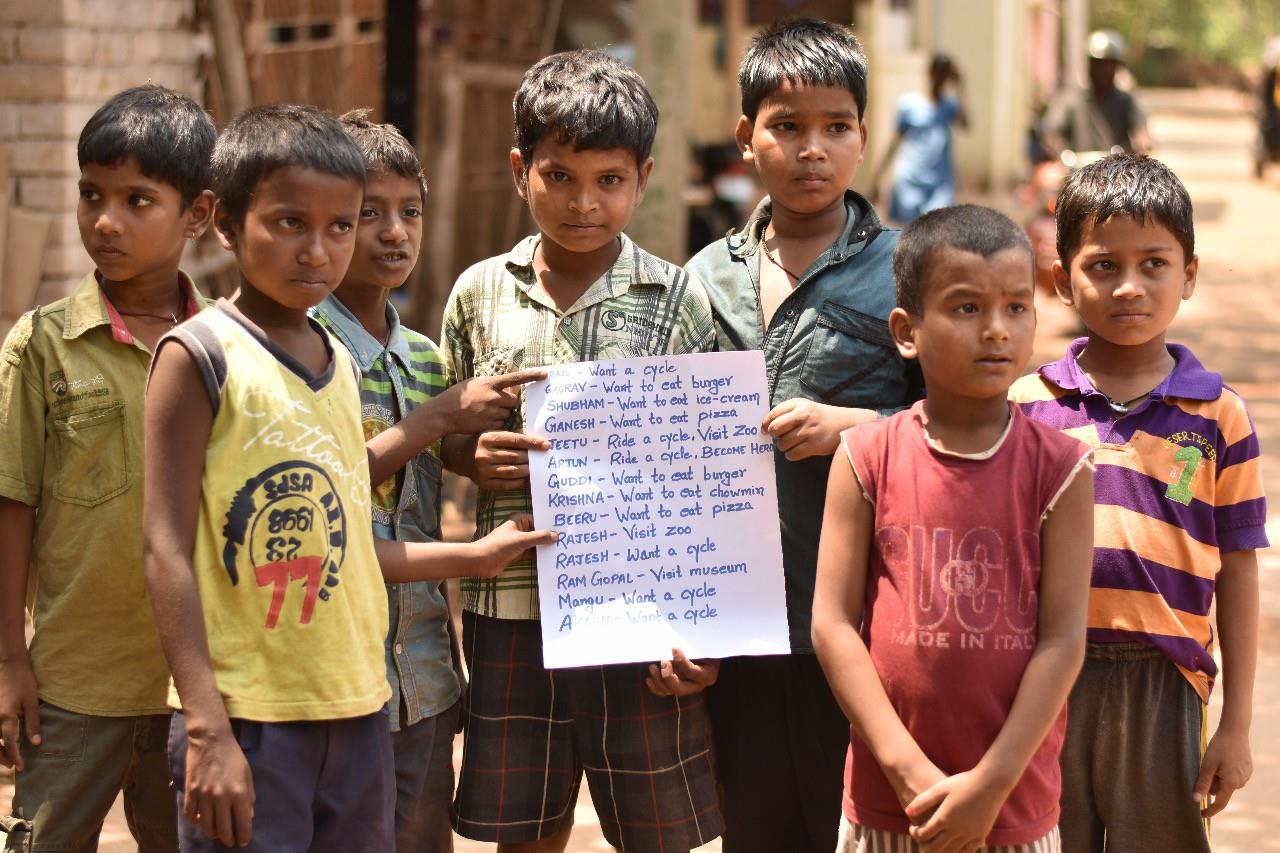 Want a cycle
GAURAV - Want to eat burger
SHUBHAM - Want to eat ice-cream
GANESH - Want to eat pizza
JEETU - Ride a cycle, Visit Zoo
ARJUN - Ride a cycle, BECOME HERO
GUDDI - Want to eat burger
KRISHNA - Want to eat chowmin
BEERU - Want to eat pizza
RAJESH - Visit zoo
RAJESH - Want a cycle
RAM GOPAL - Visit museum
Mangu - Want a cycle
AKASH - Want a cycle
Tattoos
1998
23
77
MADE IN ITAL
1